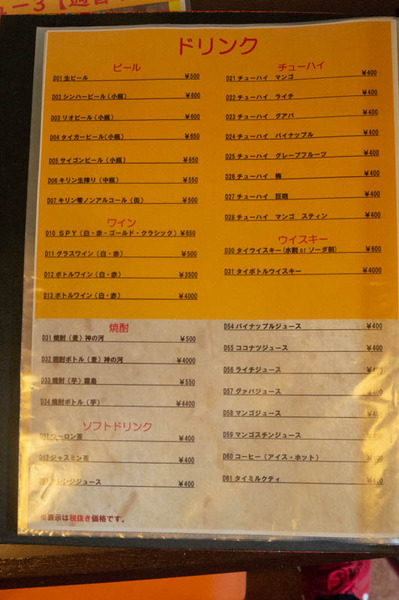 ドリンク
ビール
D01 生ビール ¥500
D02 シンハービール(小瓶) ¥600
D03 リオビール(小瓶) ¥600
D04 タイガービール(小瓶) ¥650
D05 サイゴンビール(小瓶) ¥650
D06 キリン生搾り(中瓶) ¥550
D07 キリン零ノンアルコール(缶) ¥500
ワイン
D10 SPY(白・赤・ゴールド・クラシック) ¥650
D11 グラスワイン(白・赤) ¥500
D12 ボトルワイン(白・赤) ¥3500
D13 ボトルワイン(白・赤) ¥4000
チューハイ
D21 チューハイ マンゴ ¥400
D22 チューハイ ライチ ¥400
D23 チューハイ グアバ ¥400
D24 チューハイ パイナップル ¥400
D25 チューハイ グレープフルーツ ¥400
D26 チューハイ 梅 ¥400
D27 チューハイ 巨砲 ¥400
D28 チューハイ マンゴ スティン ¥400
ウイスキー
D30 タイウイスキー(水割 or ソーダ割) ¥600
D31 タイボトルウイスキー ¥4000
焼酎
D31 焼酎(麦)神の河 ¥500
D32 焼酎ボトル(麦)神の河 ¥4000
D33 焼酎(芋)霧島 ¥550
D34 焼酎ボトル(芋) ¥4400
ソフトドリンク
ウーロン茶 ¥400
ジャスミン茶 ¥400
オレンジジュース ¥400
D54 パイナップルジュース ¥400
D55 ココナツジュース ¥400
D56 ライチジュース
D57 グァバジュース ¥400
D58 マンゴジュース ¥400
D59 マンゴスチンジュース ¥400
D60 コーヒー(アイス・ホット) ¥400
D61 タイミルクティ
※表示は税抜き価格です。